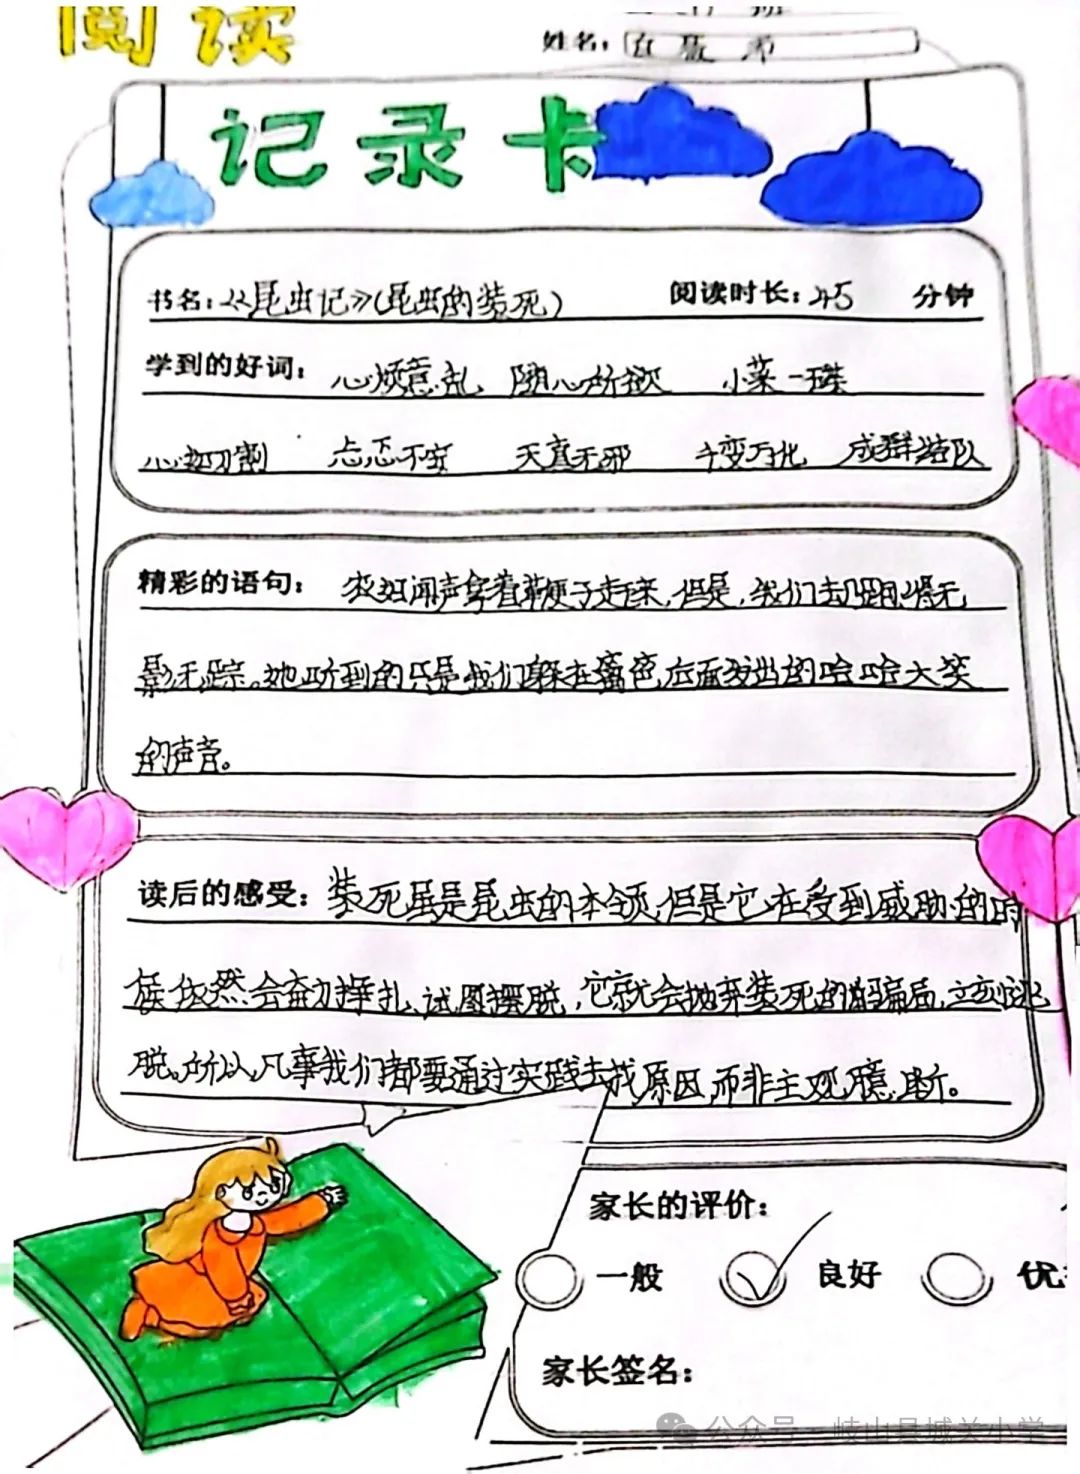 阅读
姓名：
记录卡
书名：《昆虫记》(昆虫的装死) 阅读时长：45 分钟
学到的好词： 心烦意乱 随心所欲 小菜一碟
心如刀割 忐忑不安 天真无邪 千变万化 成群结队
精彩的语句： 农妇闻声拿着鞭子走来，但是，我们去跑得无
影无踪。她听到的只是我们躲在篱笆后面发出的哈哈大笑
的声音。
读后的感受：装死虽是昆虫的本领，但是它在受到威胁的时
候依然会奋力挣扎、试图摆脱，它就会抛弃装死的骗局，立刻逃
脱。所以，凡事我们都要通过实践去找原因，而非主观臆断。
家长的评价：
一般 良好 优
家长签名：
公众号·岐山县城关小学